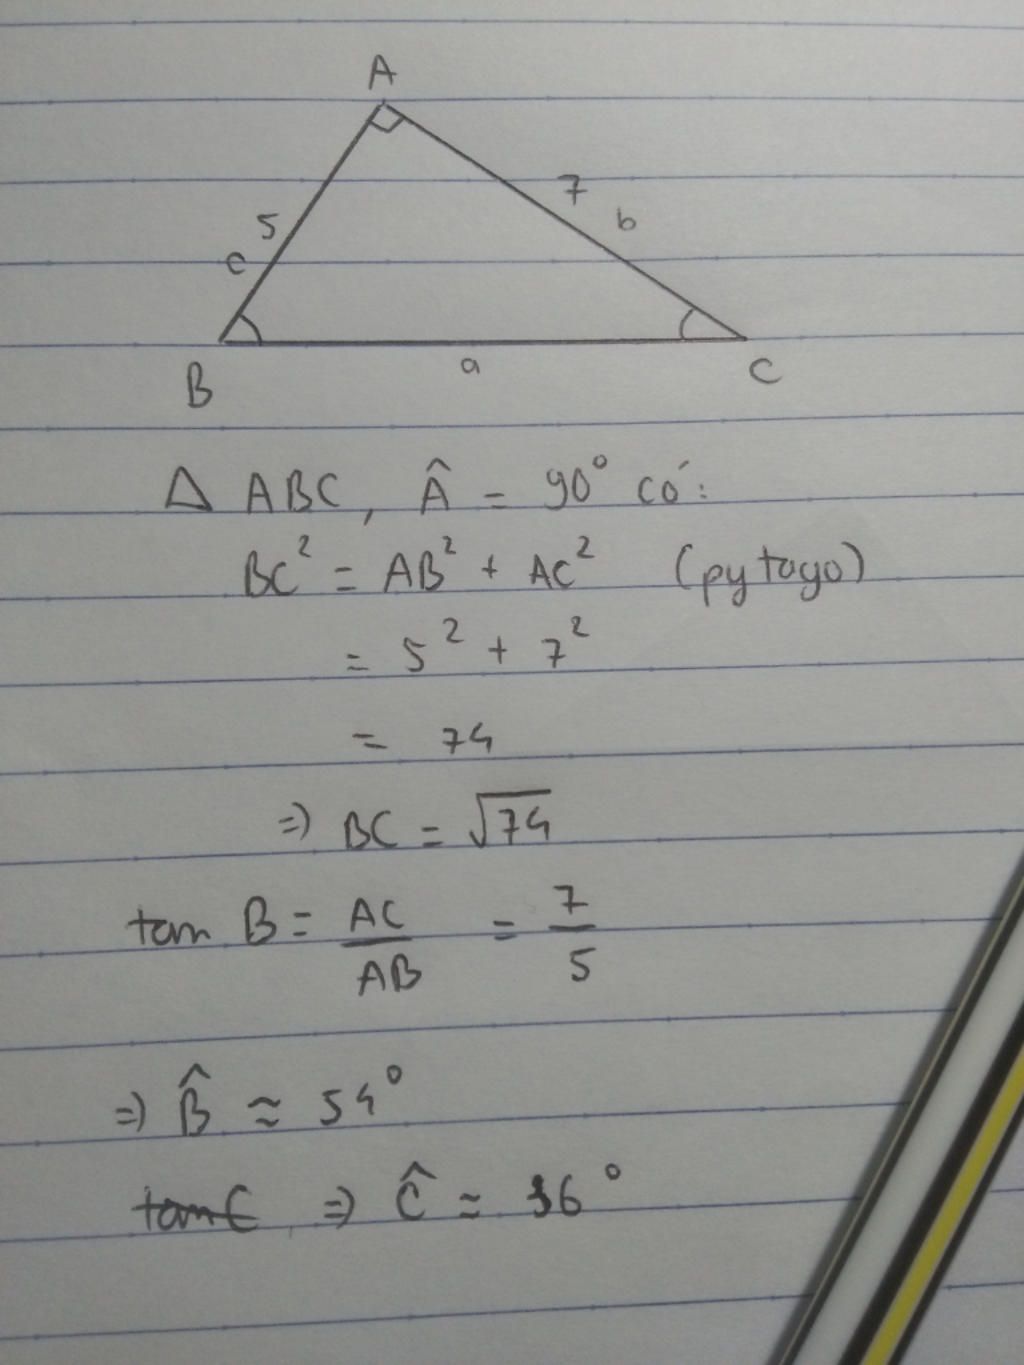 A
5
7
b
c
B
a
C
Δ ABC, Â = 90° có:
BC² = AB² + AC² (pytago)
= 5² + 7²
= 74
=> BC = √74
tan B = AC/AB = 7/5
=> B̂ ≈ 54°
tan C => Ĉ ≈ 36°